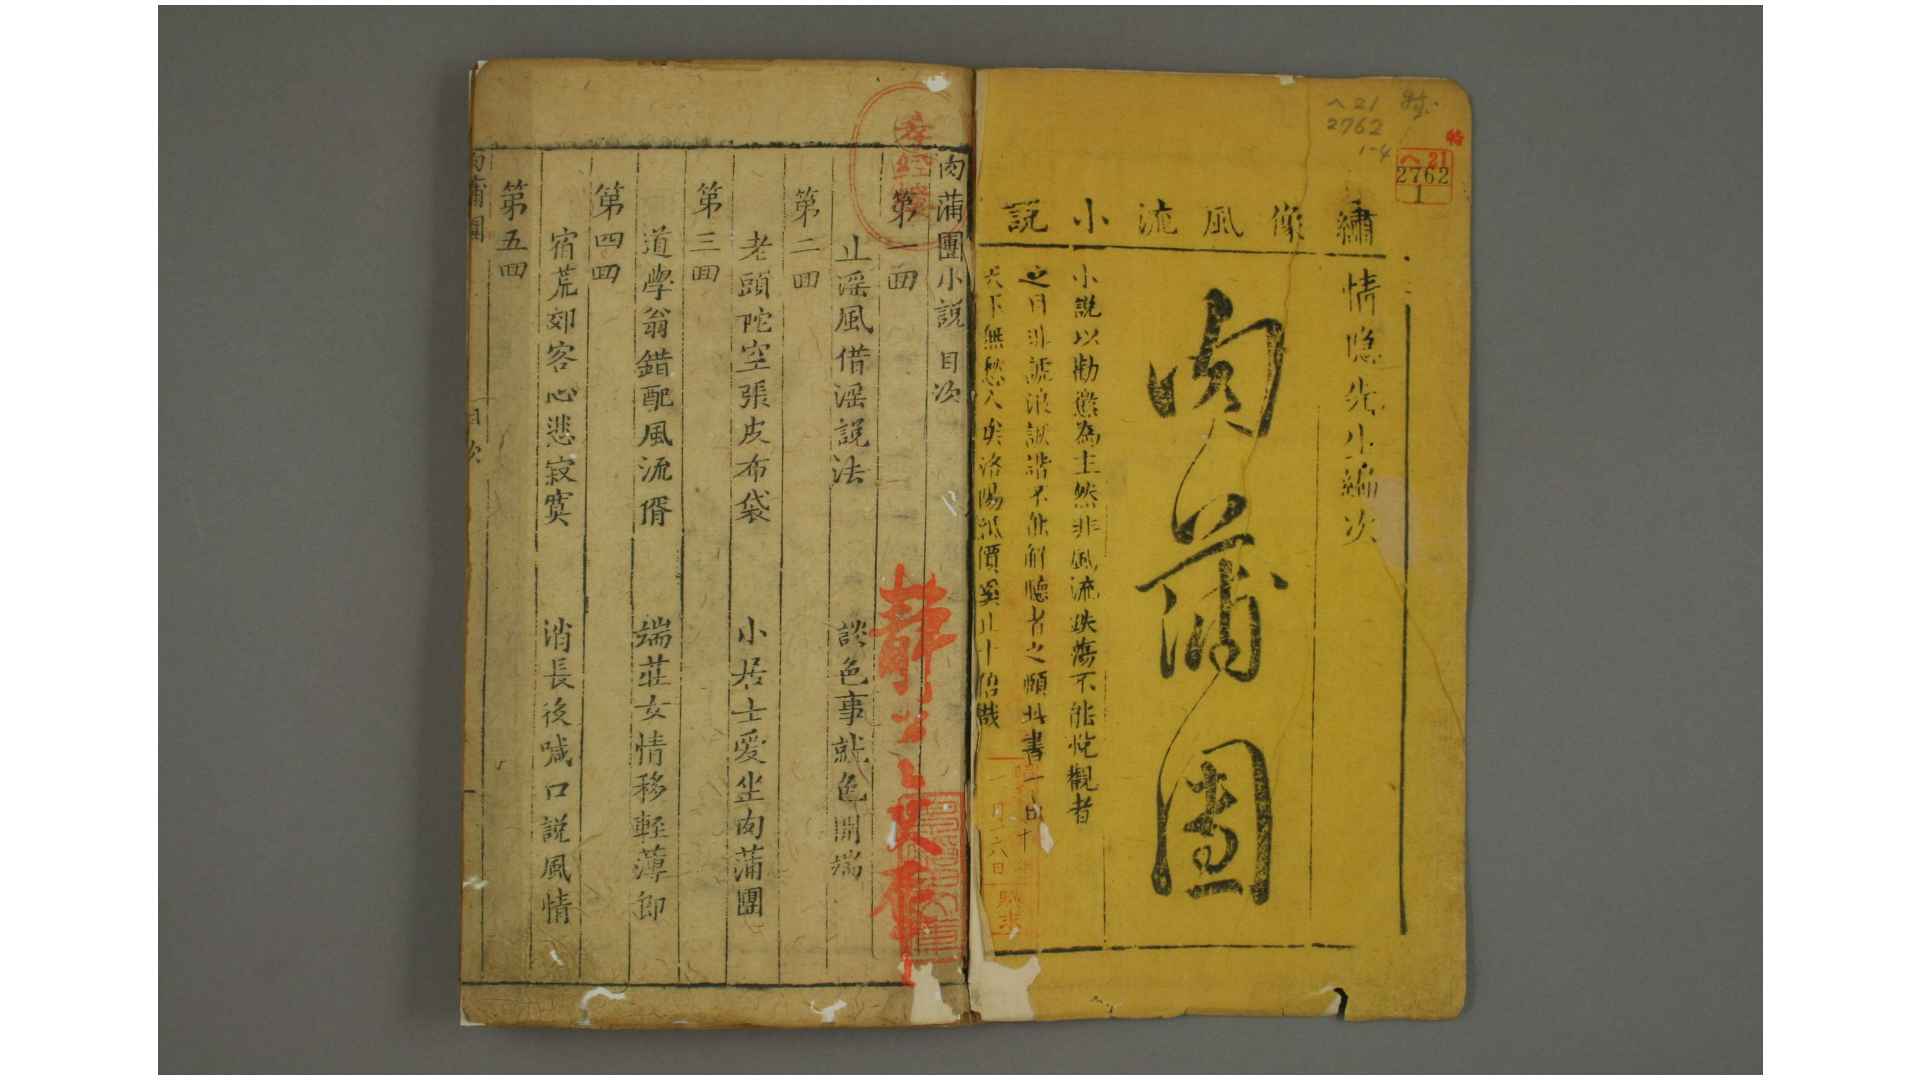 ヘ21
2762
1-4
特
ヘ 21
2762
1
繡像風流小説
情隱先生編次
肉蒲團
小説以勸懲為主然非風流跌蕩不能悅觀者
之目非謔浪詼諧不能解聽者之頤抖書一出
天下無愁人矣洛陽紙價奚止十倍哉
肉蒲團小説 目次
第一囬
止淫風借淫説法 談色事就色開端
第二囬
老頭陀空張皮布袋 小居士愛坐肉蒲團
第三囬
道學翁錯配風流婿 端莊女情移輕薄郎
第四囬
宿荒郊客心悲寂寞 消長夜喊口説風情
第五囬
肉蒲團
目次